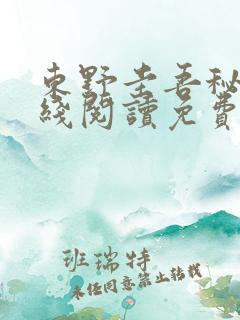 東野圭吾秘
綫閱讀免費
班瑞特
未经同意禁止转载